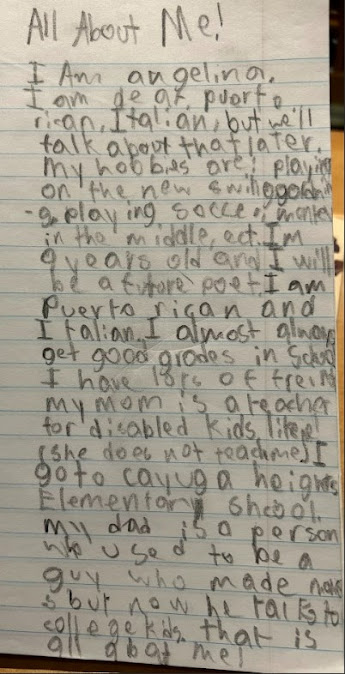 All About Me!
I Am angelina.
I am deaf, puorto
rican, Italian, but we'll
talk about that later.
My hobbies are: playing
on the new swing
playing soccer, monkey
in the middle, ect. I'm
9 years old and I will
be a future poet. I am
Puerto rican and
Italian. I almost always
get good grades in School
I have lots of
my mom is a teacher
for disabled kids
(she does not teach me) I
go to cayuga heights
Elementary Shcool.
my dad is a person
who used to be a
guy who made
but now he talks to
college kids. that is
all about me!